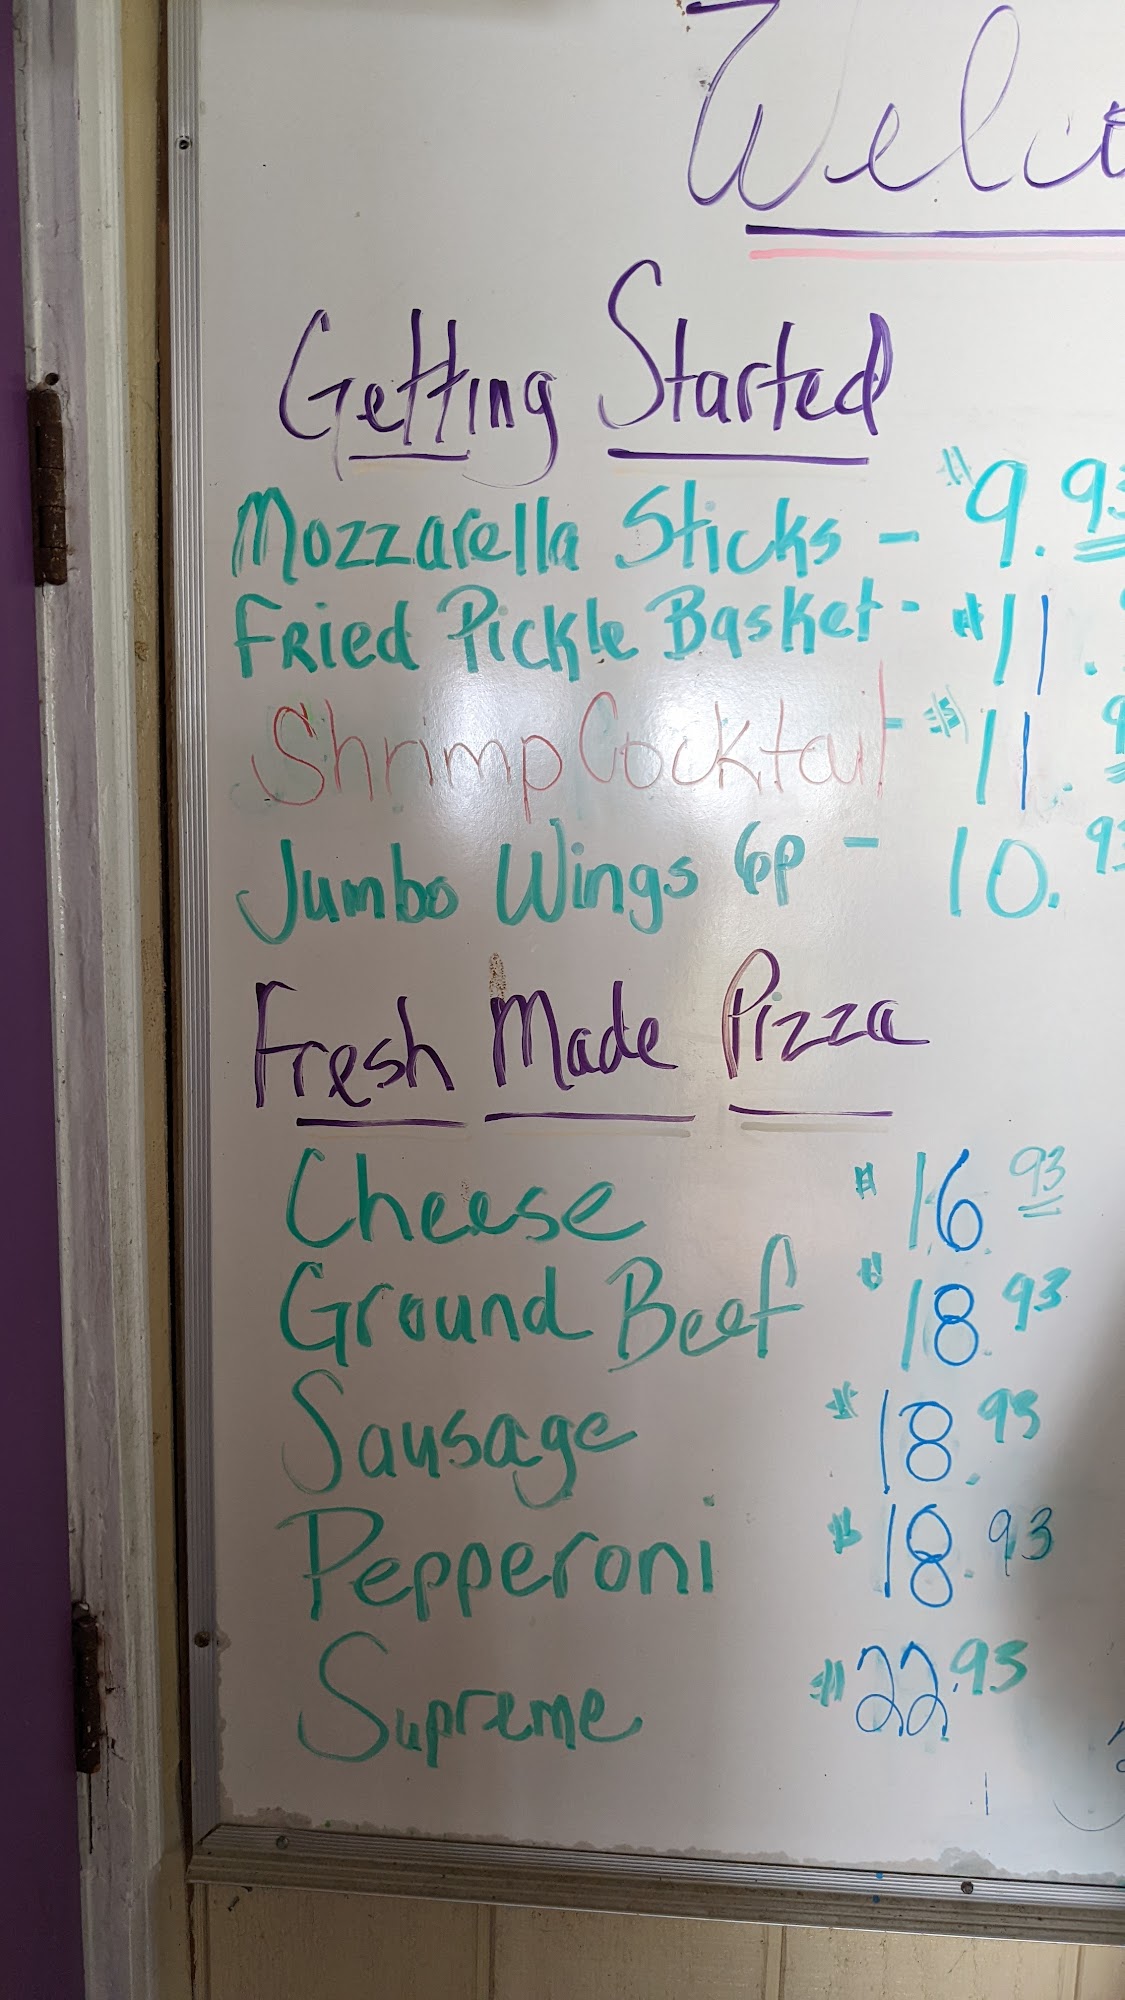 Welco
Getting Started
Mozzarella Sticks - $9.93
Fried Pickle Basket - $11.
Shrimp Cocktail - $11.9
Jumbo Wings 6p - 10.93
Fresh Made Pizza
Cheese $16.93
Ground Beef $18.93
Sausage $18.93
Pepperoni $18.93
Supreme $22.93